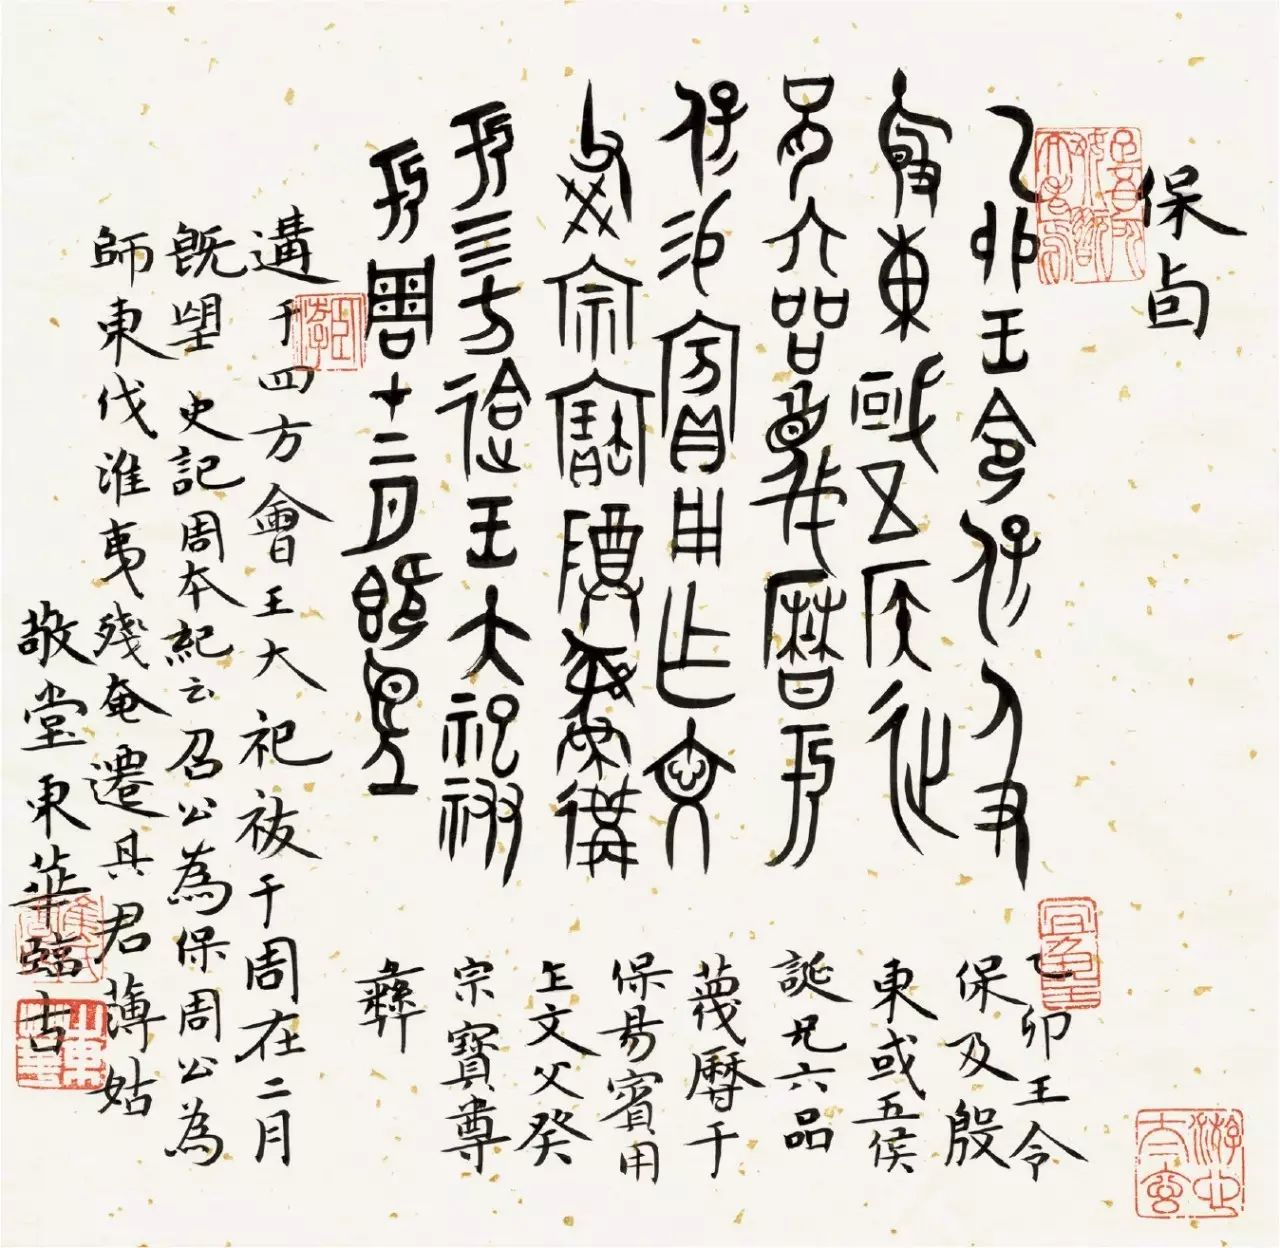 保卣
乙卯王令保及
殷東或五侯征
兄六品蔑曆于
保易賓用乍文
父癸宗寶尊彝遘
于四方會王大祀祓
于周才二月既望
乙卯王令
保及殷
東或五侯
誕兄六品
蔑曆于
保易賓用
乍文父癸
宗寶尊
彝
遘于四方會王大祀祓于周在二月
既望 史記周本紀云召公為保周公為
師東伐淮夷殘奄遷其君薄姑
敬堂東華臨古